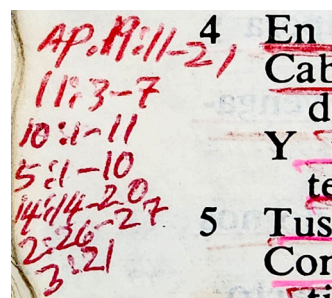 AP. 19:11-21
11:3-7
10:1-11
5:1-10
14:14-20
2:26-27
3:21
4 En
Cab
d
Y
te
5 Tus
Con